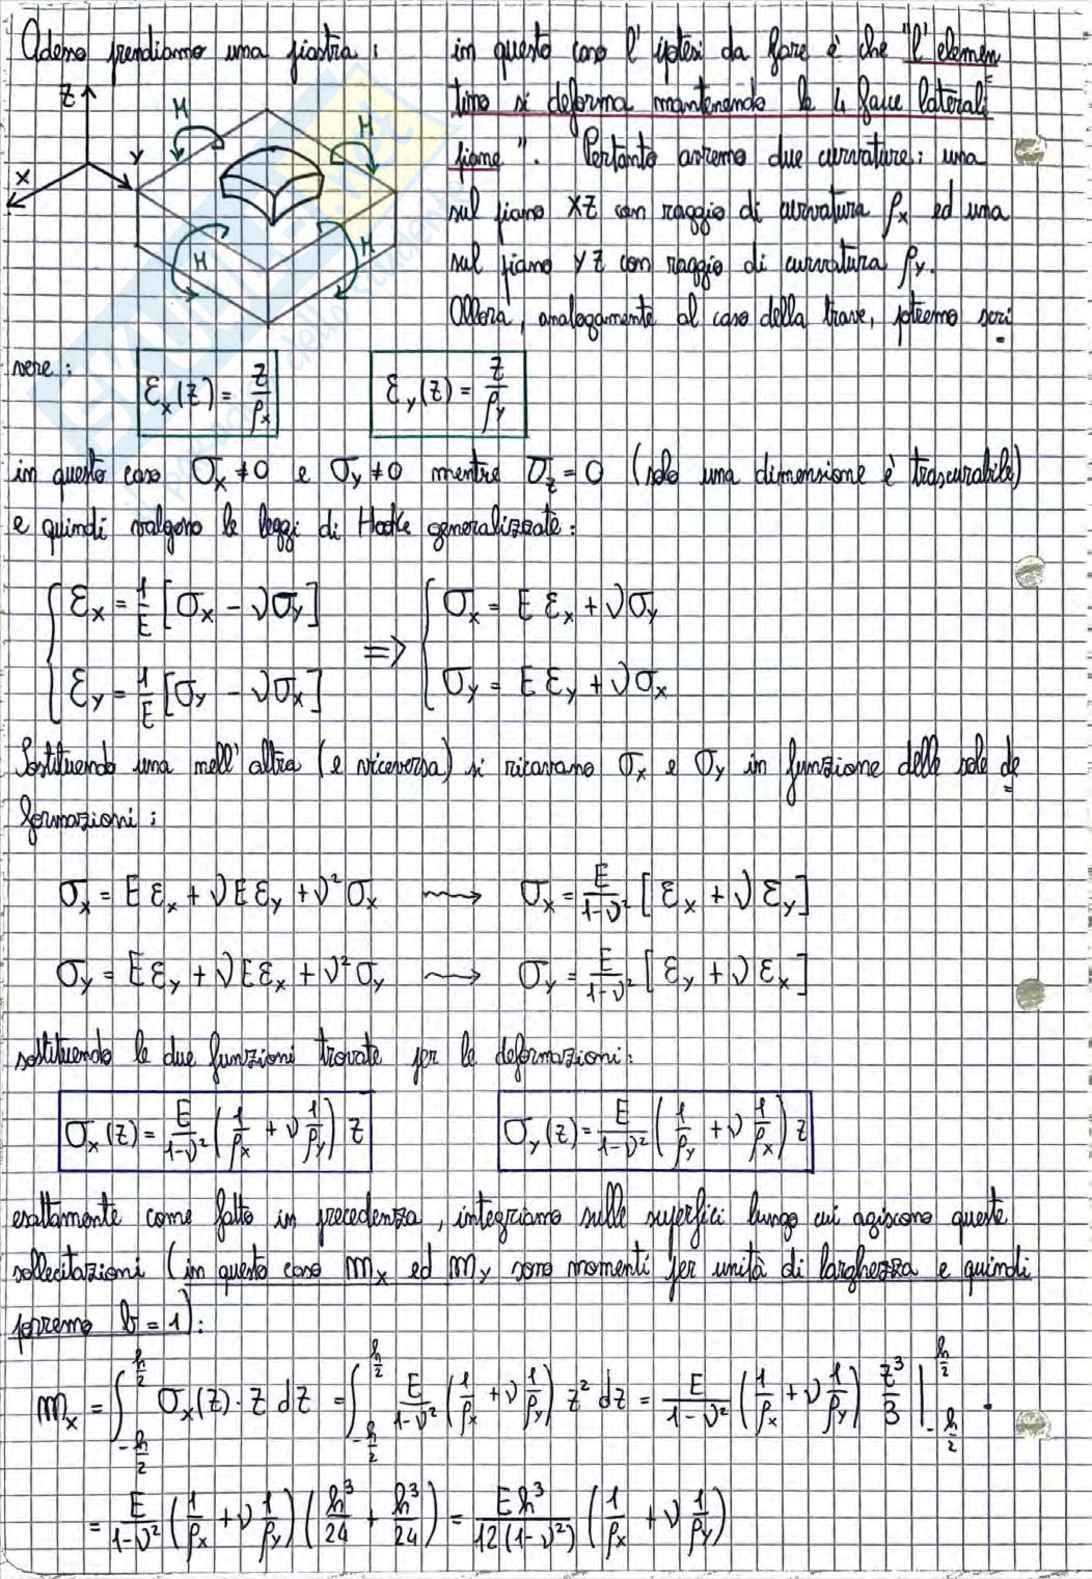 Adesso prendiamo una piastra :
in questo caso l'ipotesi da fare è che "l'elemen
tino si deforma mantenendo le 4 facce laterali
piane". Pertanto avremo due curvature: una
sul piano XZ con raggio di curvatura ρx ed una
sul piano YZ con raggio di curvatura ρy.
Allora, analogamente al caso della trave, potremo scri
Z
X
Y
M
M
M
M
vere :
εx(z) = z/ρx
εy(z) = z/ρy
in questo caso σx ≠ 0 e σy ≠ 0 mentre σz = 0 (solo una dimensione è trascurabile)
e quindi valgono le leggi di Hooke generalizzate :
εx = 1/E [σx - νσy]
=>
σx = E εx + νσy
εy = 1/E [σy - νσx]
σy = E εy + νσx
Sostituendo una nell'altra (e viceversa) si ricavano σx e σy in funzione delle sole de
formazioni :
σx = E εx + νE εy + ν² σx ⟿ σx = E/(1-ν²) [εx + νεy]
σy = E εy + νE εx + ν² σy ⟿ σy = E/(1-ν²) [εy + νεx]
sostituendo le due funzioni trovate per le deformazioni:
σx(z) = E/(1-ν²) (1/ρx + ν 1/ρy) z
σy(z) = E/(1-ν²) (1/ρy + ν 1/ρx) z
esattamente come fatto in precedenza, integriamo sulle superfici lungo cui agiscono queste
sollecitazioni (in questo caso mx ed my sono momenti per unità di larghezza e quindi
porremo b = 1):
mx = ∫_{-h/2}^{h/2} σx(z) · z dz = ∫_{-h/2}^{h/2} E/(1-ν²) (1/ρx + ν 1/ρy) z² dz = E/(1-ν²) (1/ρx + ν 1/ρy) z³/3 |_{-h/2}^{h/2} .
= E/(1-ν²) (1/ρx + ν 1/ρy) (h³/24 + h³/24) = Eh³/(12(1-ν²)) (1/ρx + ν 1/ρy)